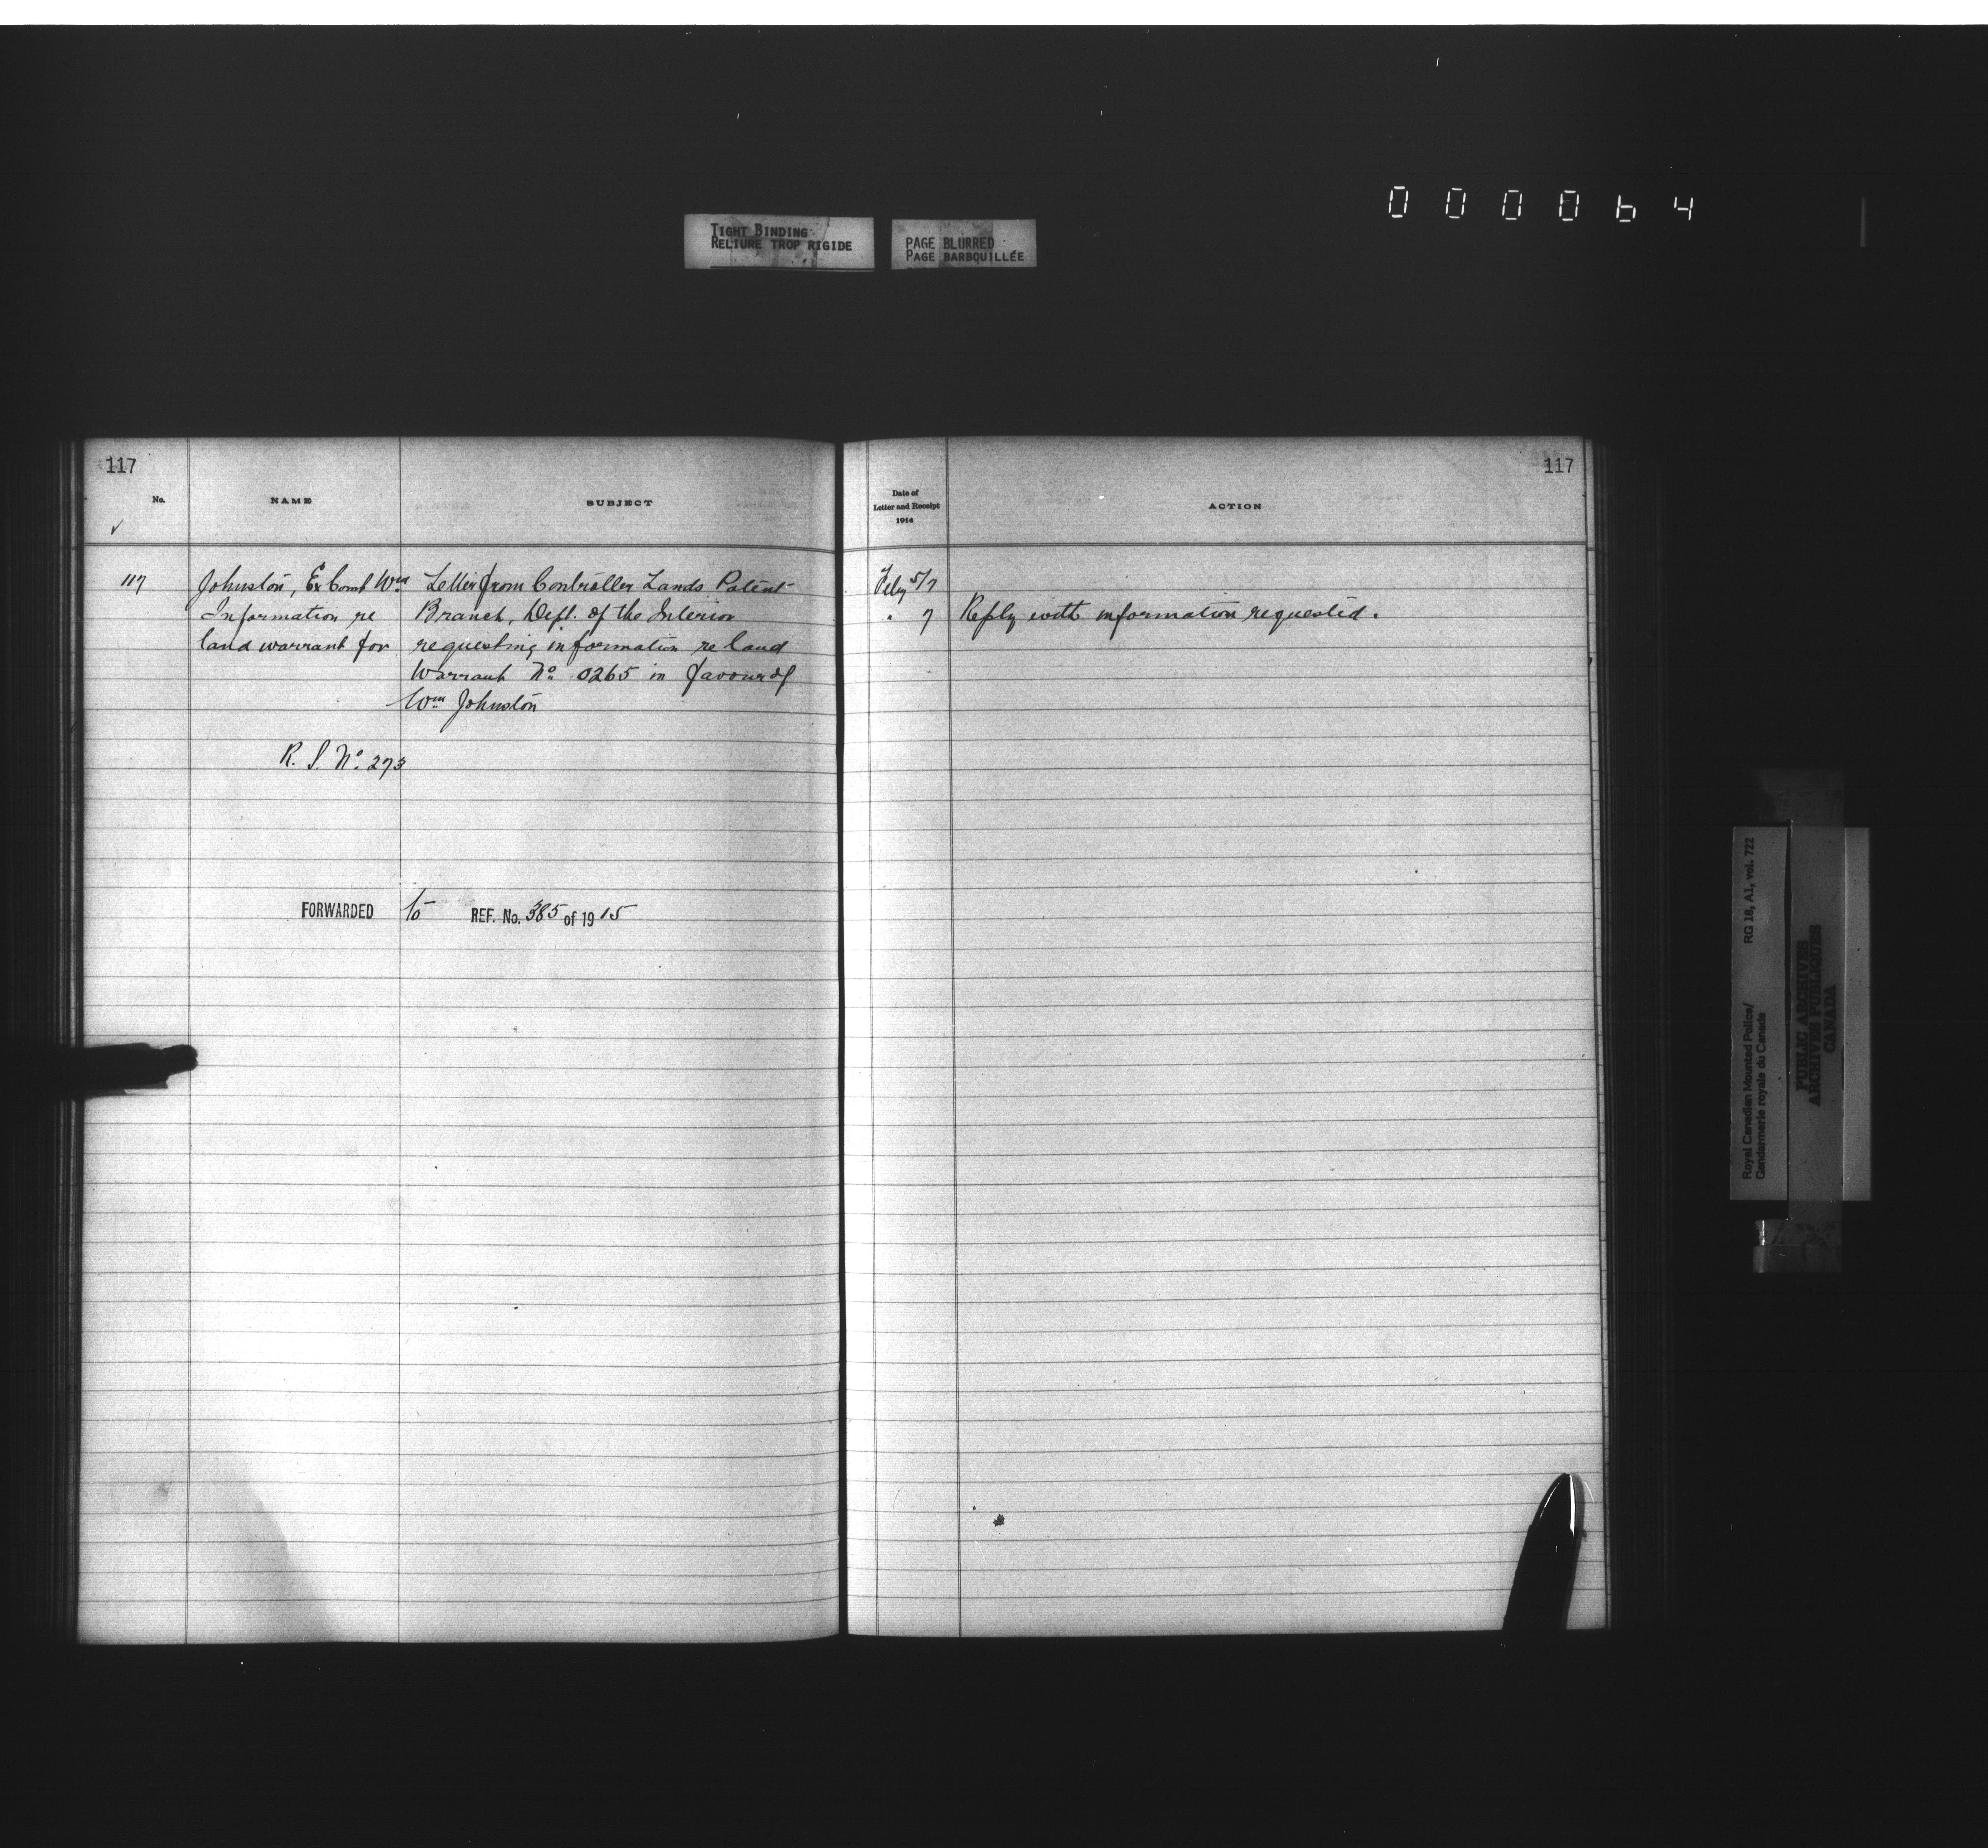 000064
TIGHT BINDING
RELIURE TROP RIGIDE
PAGE BLURRED
PAGE BARBOUILLÉE
117
No.
NAME
SUBJECT
✓
117
Johnston, Ex Const Wm
Information re
land warrant for
Letter from Controller Lands Patent
Branch, Dept. of the Interior
requesting information re land
Warrant No. 0265 in favour of
Wm Johnston
R. S. No. 273
FORWARDED to REF. No. 385 of 1915
117
Date of
Letter and Receipt
1914
ACTION
Feby 5/7
" 7 Reply with information requested.
Royal Canadian Mounted Police/
Gendarmerie royale du Canada
RG 18, A1, vol. 722
PUBLIC ARCHIVES
ARCHIVES PUBLIQUES
CANADA